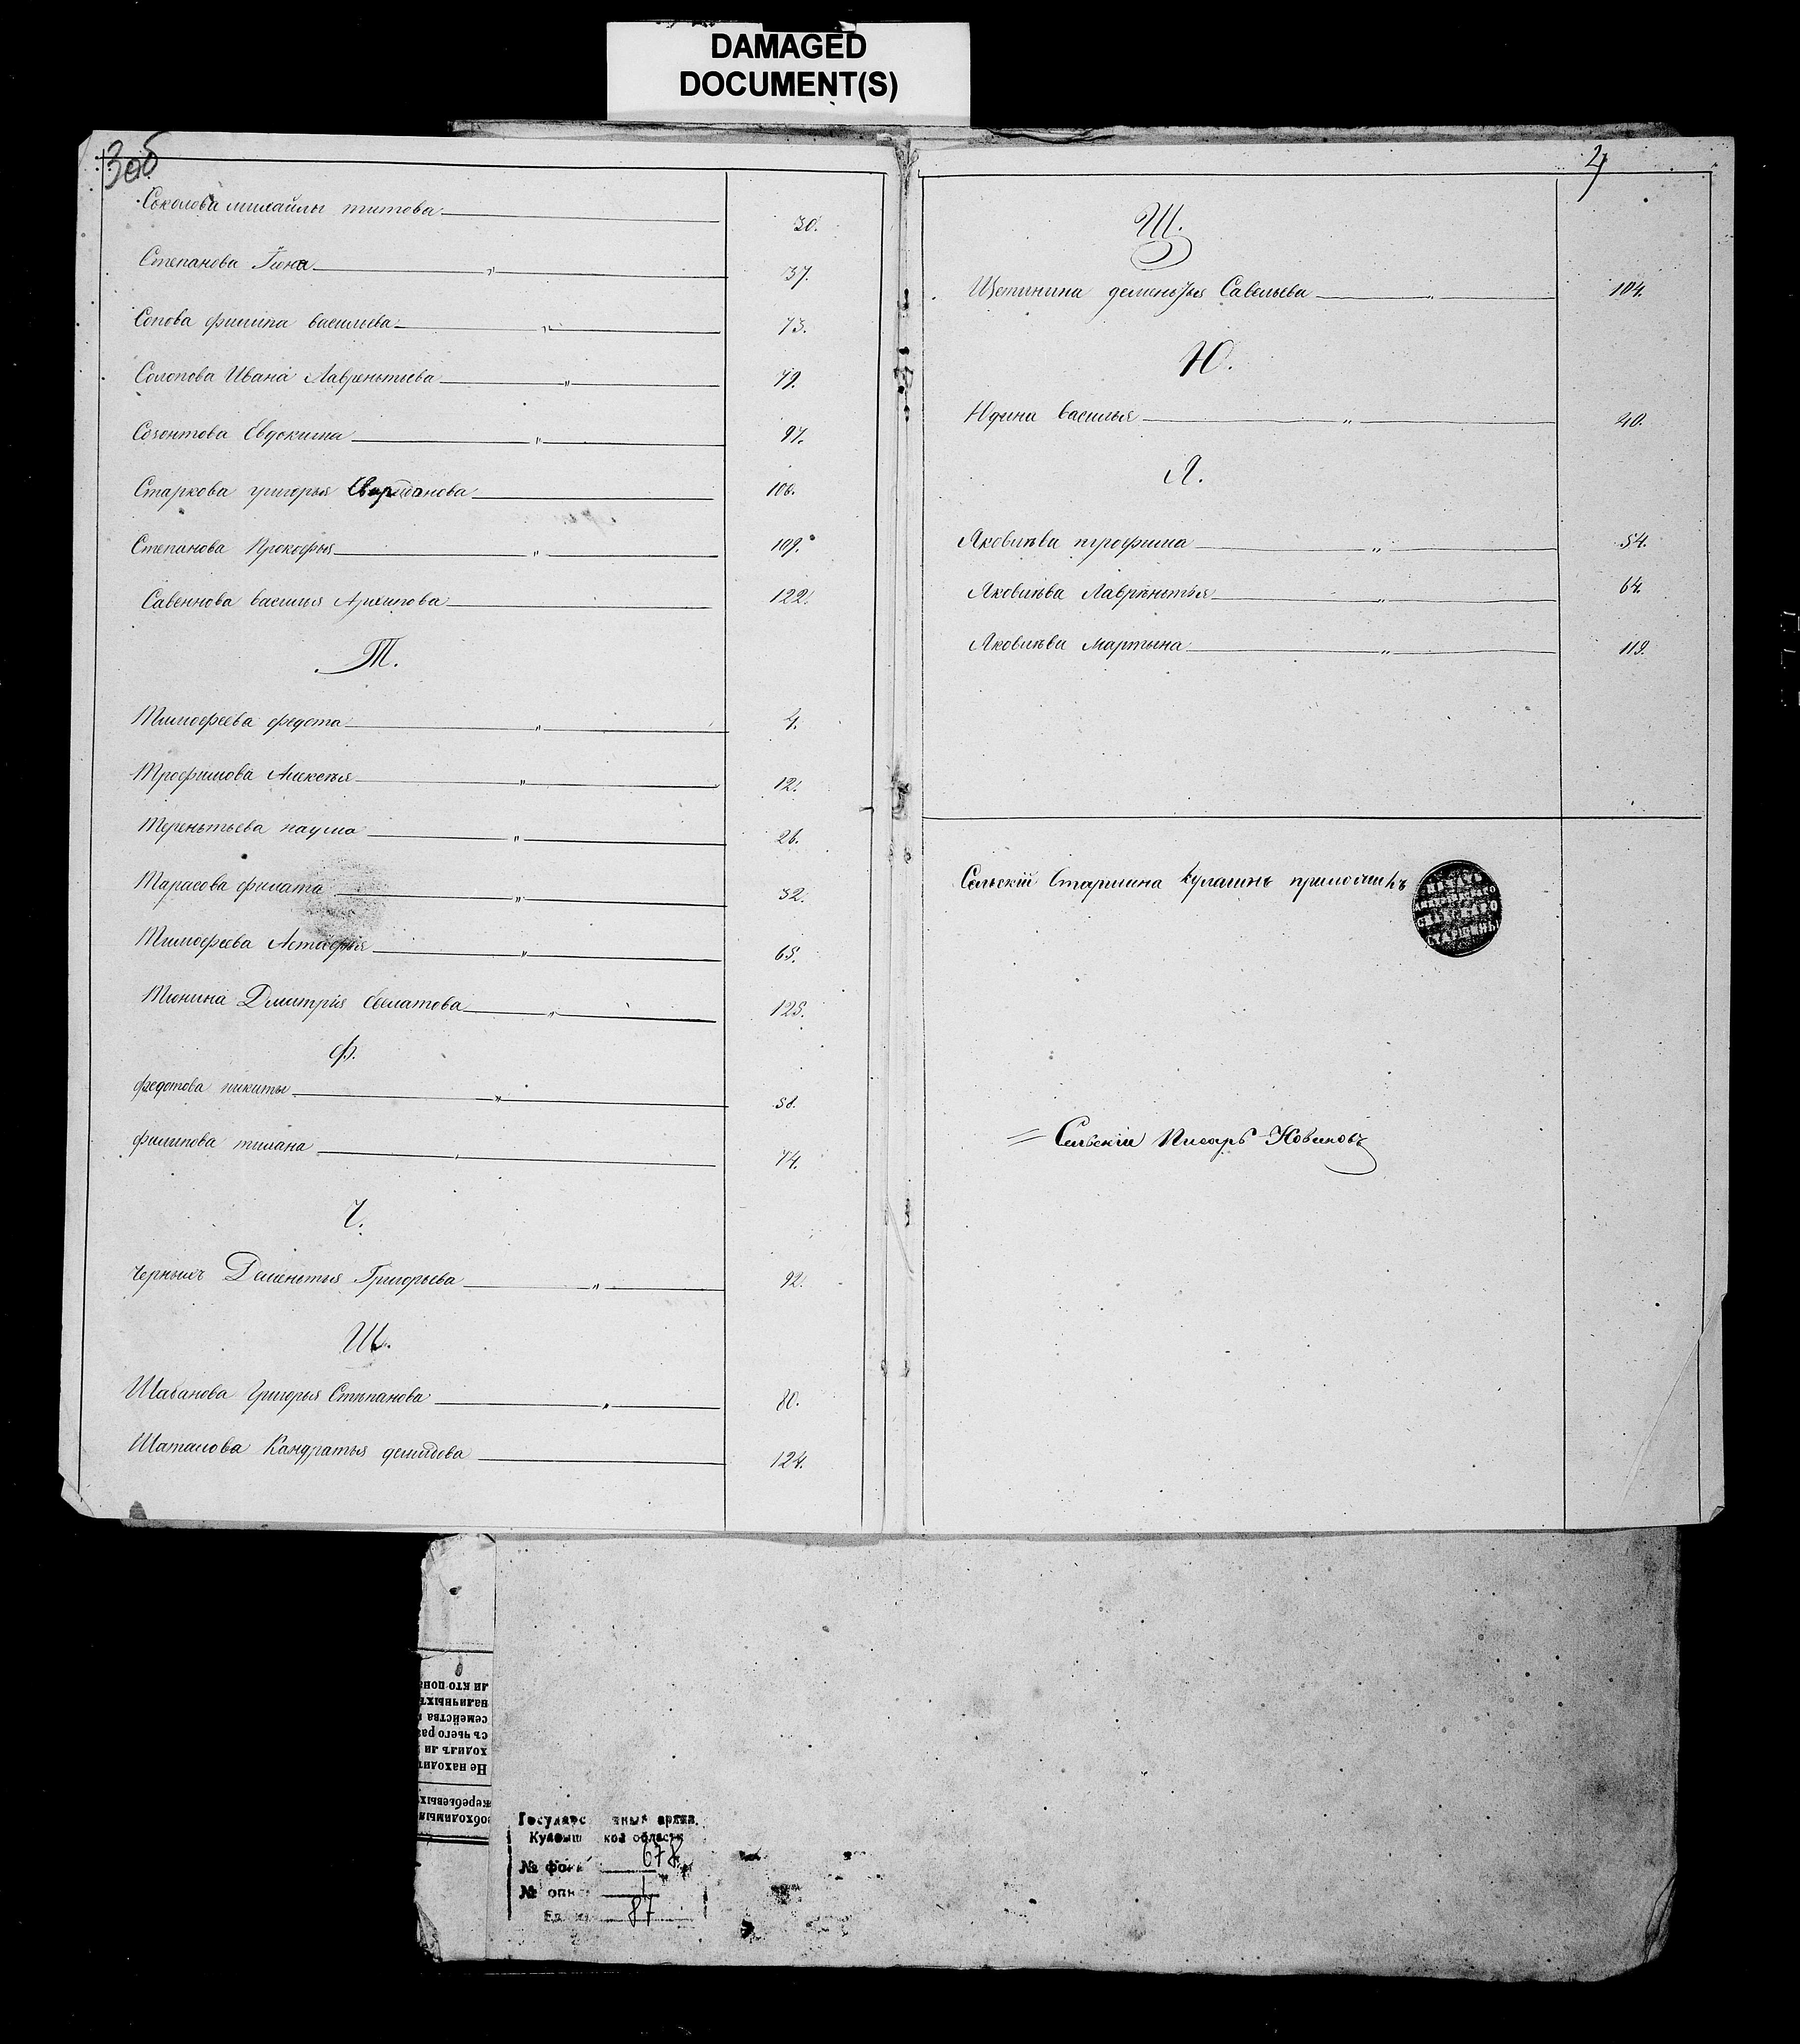 DAMAGED
DOCUMENT(S)
3об
Соколова михайлы титова 30.
Степанова Іона " 37.
Сопова филипа васильева " 73.
Солопова Ивана Лаврентьева " 79.
Созонтова Евдокима " 97.
Старкова григорья 106.
Степанова Прокофья " 109.
Савеннова василья Архипова 122.
Т.
Тимофеева федота " 4.
Трофимова Алексея " 12.
Терентьева наума " 26.
Тарасова филата " 32.
Тимофеева Астафья " 65.
Тюнина Дмитрія 125.
Ф.
федотова никиты " 58.
филипова 74.
Ч.
черныхъ Дементья Григорьева " 92.
Ш.
Шабанова Григорья Степанова " 80.
Шаталова Кандратья демидова 124.
4
Щ.
Щетинина дементья Савельева " 104.
Ю.
Юдина василья " 40.
Я.
Яковлева трофима " 54.
Яковлева Лаврентья " 64.
Яковлева мартына " 119.
Сельскій Старшина Кулагинъ
СЕЛЬСКАГО
СТАРШИНЫ
Сельскій Писарь Новиковъ
ли кто пона
наличныхъ
семейства
съ чьего раз
ходитъ ли
Не находит
жеребьевыхъ
обходимым
Государс нный архив
Куйбыш кой области
№ фон 678
№ опи 1
Ед. хр 87